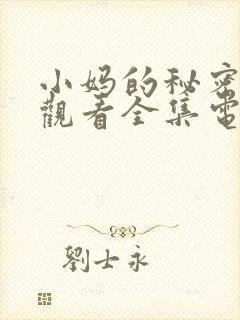 小妈的秘密
觀看全集電
劉士永